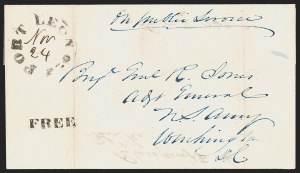 On public Service
PORT LEON
Nov
24
Brig. Genl R. Jones
Adjt General
U.S. Army
Washington
D.C.
FREE